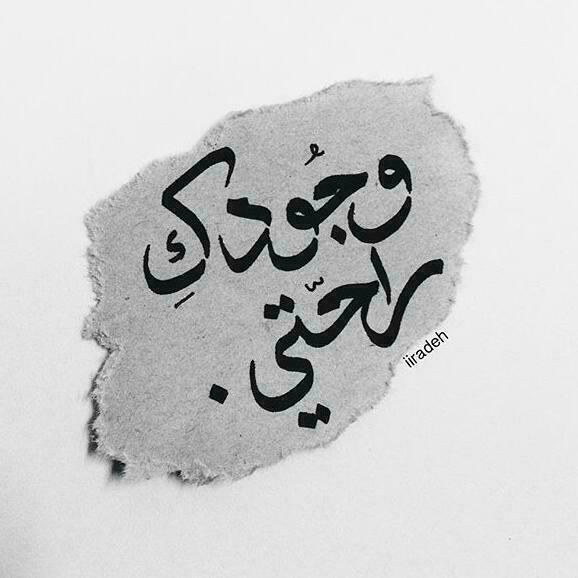 وجُودكِ
راحتي.
iiradeh